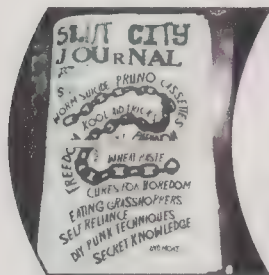 SLUT CITY
JOURNAL
WORM SUICIDE PRUNO CASSETTES
KOOL AID TRICKS
WHEAT PASTE
CURES FOR BOREDOM
EATING GRASSHOPPERS
SELF RELIANCE
DIY PUNK TECHNIQUES
SECRET KNOWLEDGE